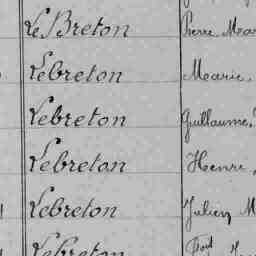 Le Breton Pierre Mar
Lebreton Marie,
Lebreton Guillaume,
Lebreton Henri,
Lebreton Julien M
Lebreton